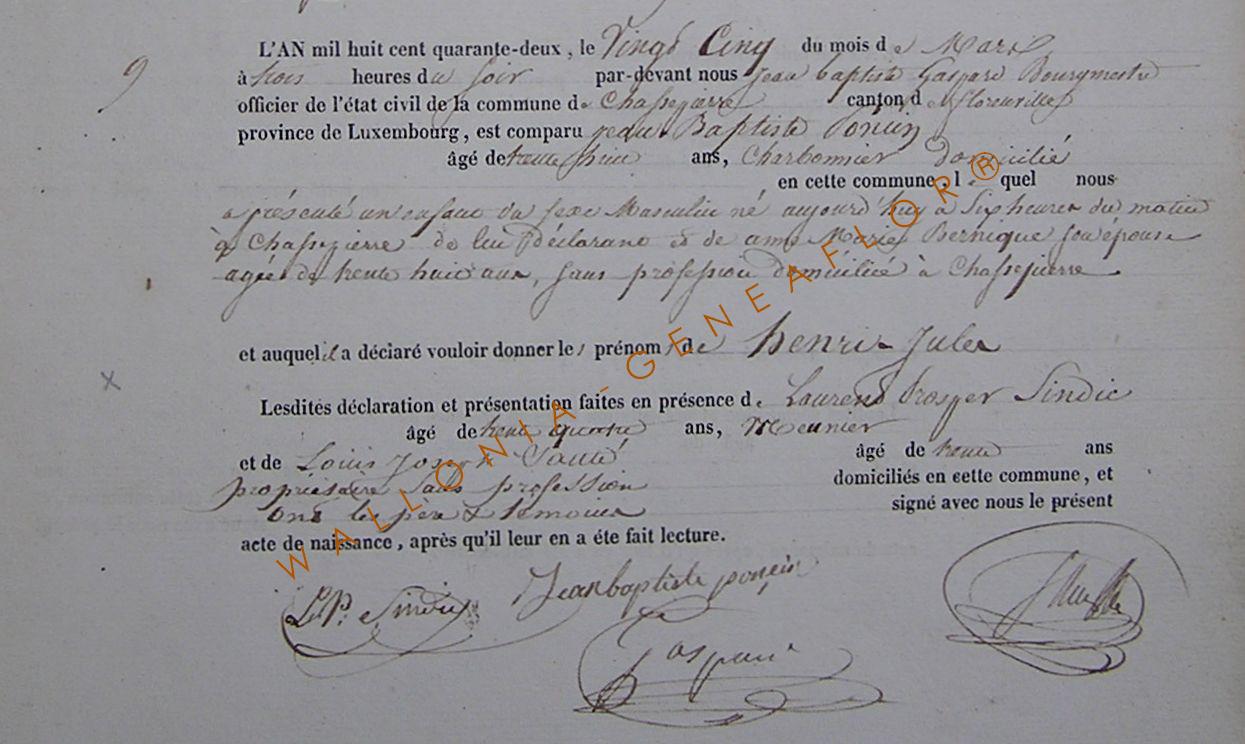 9
L'AN mil huit cent quarante-deux, le Vingt Cinq du mois de Mars
à trois heures du soir par-devant nous jean baptiste Gaspard Bourgmestre
officier de l'état civil de la commune de Chassepierre canton de florenville
province de Luxembourg, est comparu jean Baptiste Poncin
âgé de trente ans, Charbonnier domicilié
en cette commune, le quel nous
a présenté un enfant du sexe Masculin né aujourd'huy a Six heures du matin
à Chassepierre de lui déclarant et de anne Marie Bernique son épouse
agée de trente huit ans, sans profession domiciliée à Chassepierre
et auquel il a déclaré vouloir donner les prénoms de henri Jules
Lesdites déclaration et présentation faites en présence de Laurent Prosper Sindic
âgé de trente quatre ans, Meunier
et de Louis Joseph âgé de trente ans
propriétaire sans profession domiciliés en cette commune, et
ont les père & témoins signé avec nous le présent
acte de naissance, après qu'il leur en a éte fait lecture.
L.P. Sindic Jean baptiste poncin
Gaspard
WALLONIA-GENEAFLOR®